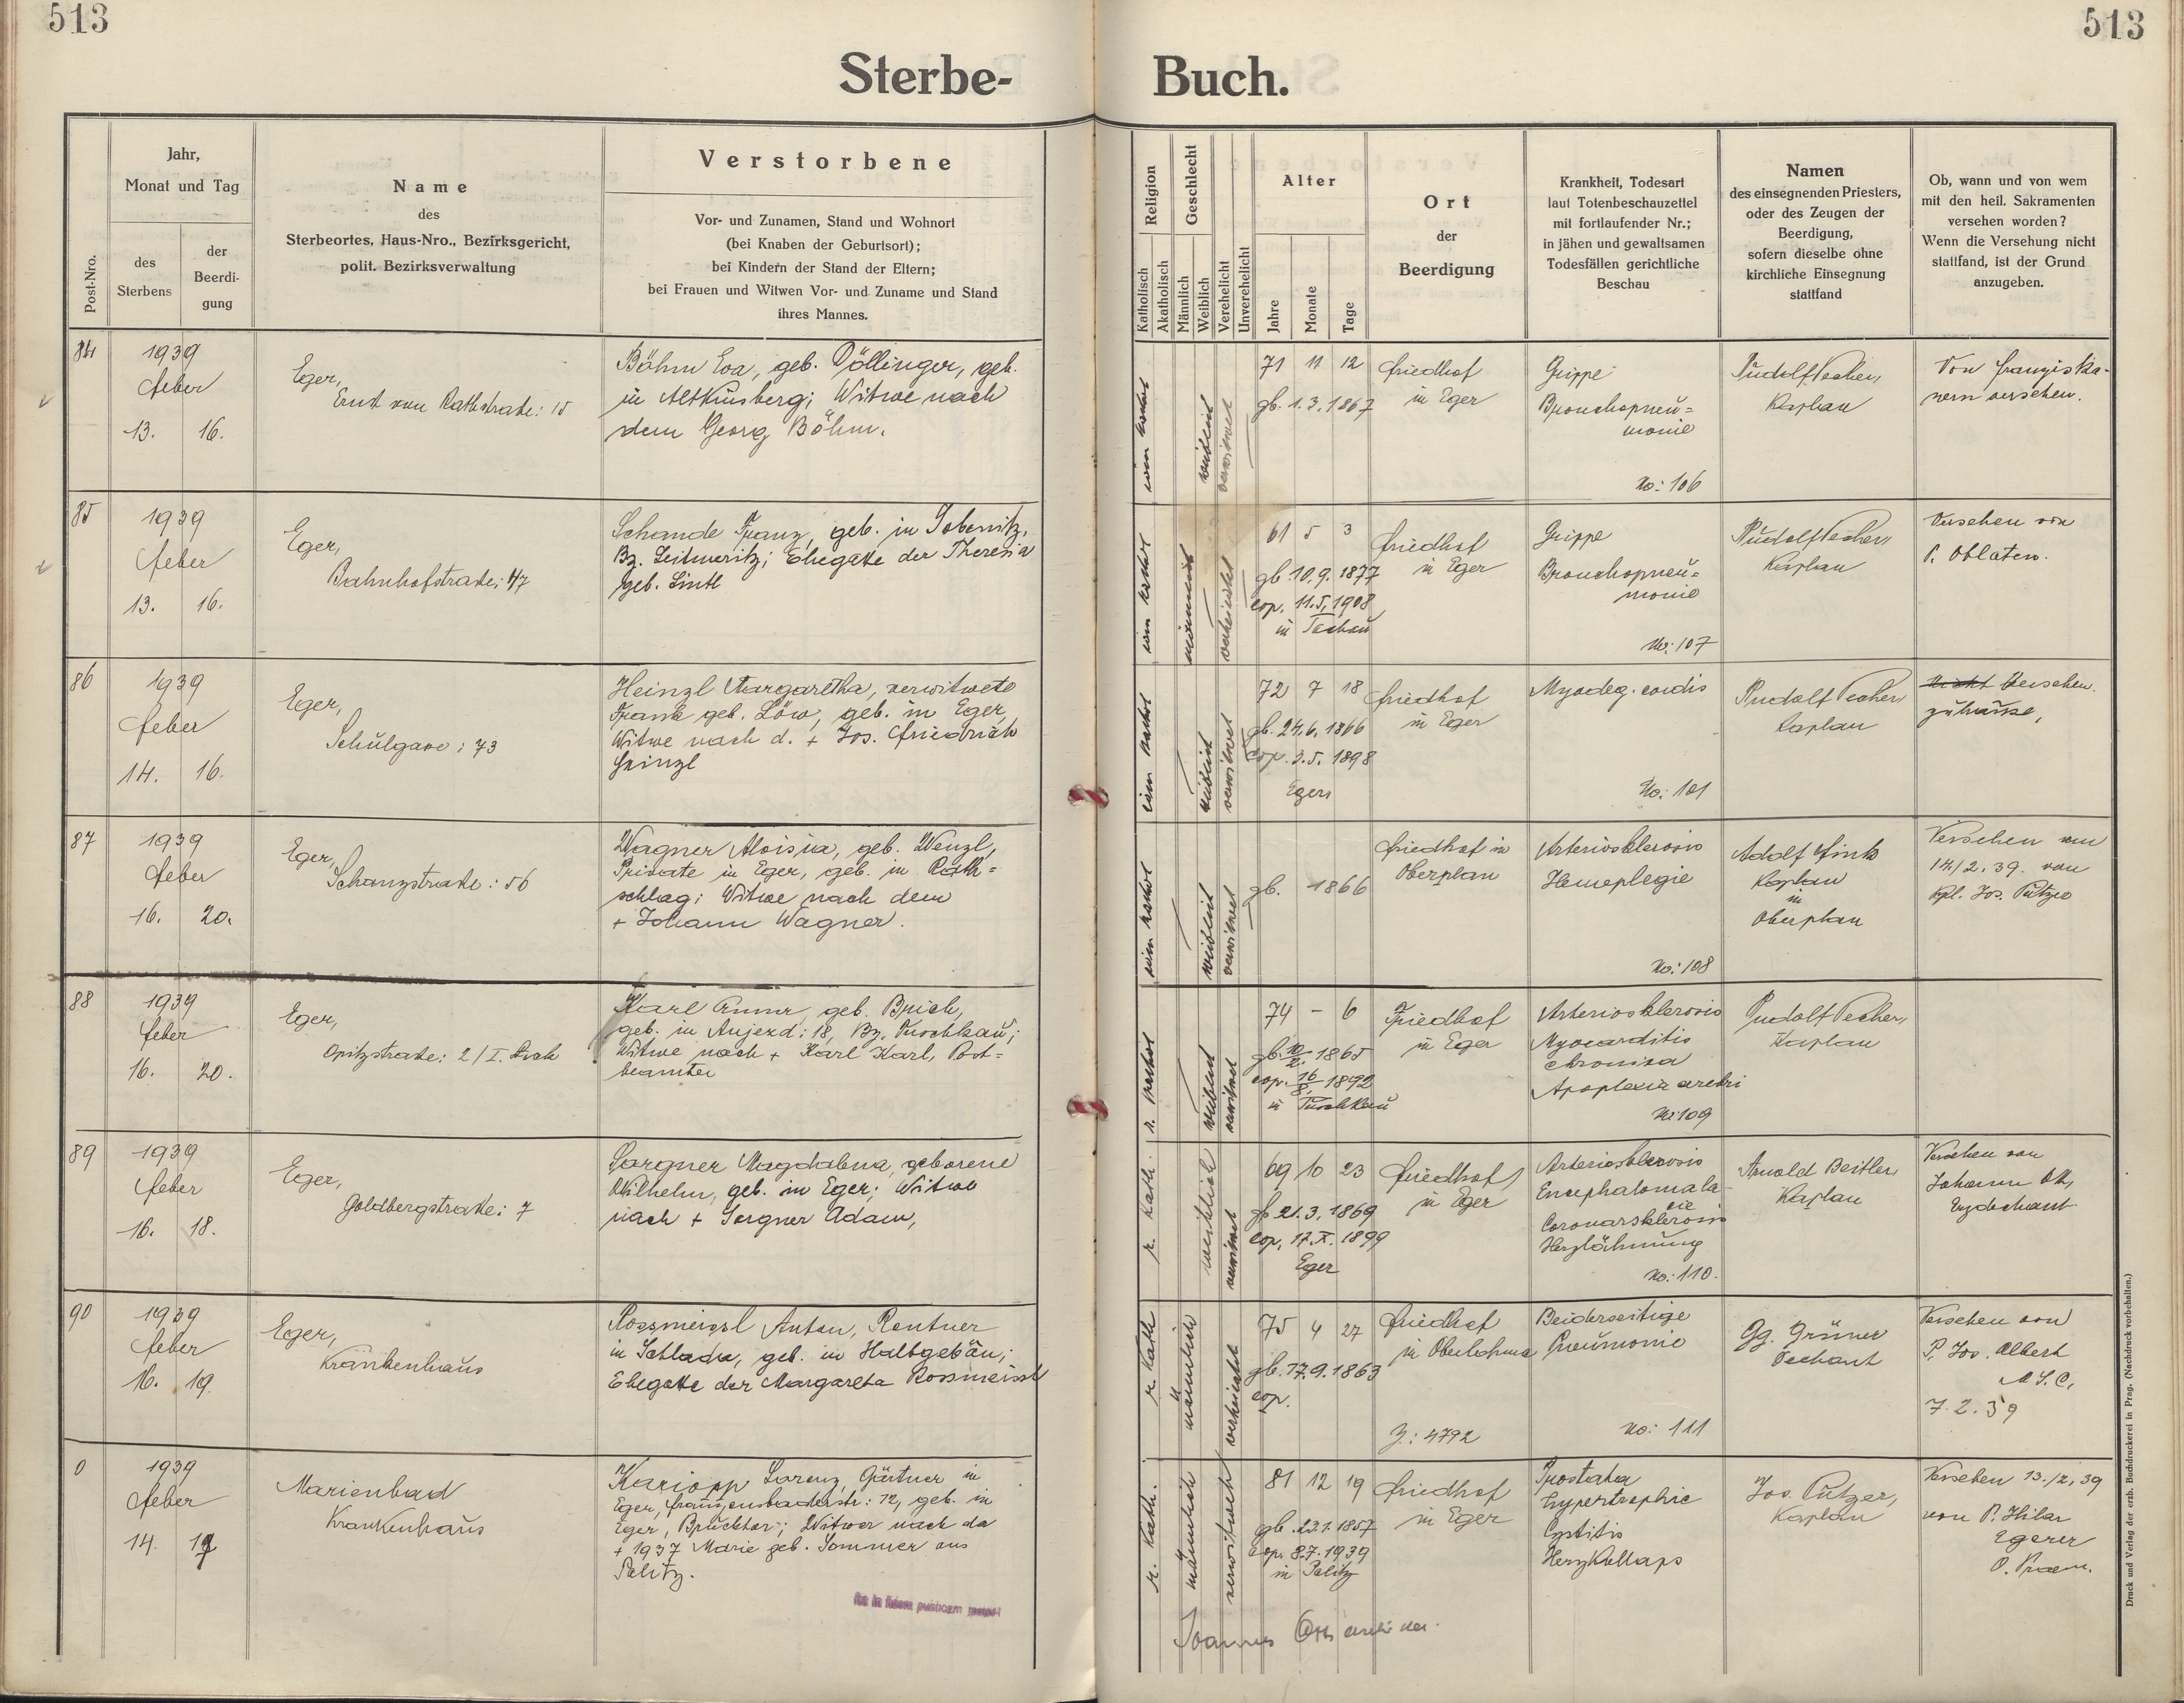 513
513
Sterbe-
Buch.
Post-Nro.
Jahr,
Monat und Tag
des
Sterbens
der
Beerdi-
gung
Name
des
Sterbeortes, Haus-Nro., Bezirksgericht,
polit. Bezirksverwaltung
Verstorbene
Vor- und Zunamen, Stand und Wohnort
(bei Knaben der Geburtsort);
bei Kindern der Stand der Eltern;
bei Frauen und Witwen Vor- und Zuname und Stand
ihres Mannes.
Religion
Katholisch
Akatholisch
Geschlecht
Männlich
Weiblich
Verehelicht
Unverehelicht
Alter
Jahre
Monate
Tage
Ort
der
Beerdigung
Krankheit, Todesart
laut Totenbeschauzettel
mit fortlaufender Nr.;
in jähen und gewaltsamen
Todesfällen gerichtliche
Beschau
Namen
des einsegnenden Priesters,
oder des Zeugen der
Beerdigung,
sofern dieselbe ohne
kirchliche Einsegnung
stattfand
Ob, wann und von wem
mit den heil. Sakramenten
versehen worden?
Wenn die Versehung nicht
stattfand, ist der Grund
anzugeben.
84
1939
Feber
13. 16.
Eger,
Ernst vom Rathstraße: 15
Böhm Eva, geb. Döllinger, geb.
in Altkinsberg; Witwe nach
dem Georg Böhm.
röm kathol
weiblich
verwitwet
71 11 12
gb. 1.3.1867
Friedhof
in Eger
Grippe
Bronchopneu=
monie
No: 106
Rudolf Pecher,
Kaplan
Von Franziska-
nern versehen.
85
1939
Feber
13. 16.
Eger,
Bahnhofstraße: 47
Schande Franz, geb. in
Bz. Leitmeritz; Ehegatte der Theresia
geb. Lintl
röm kathol
männlich
verheiratet
61 5 3
gb. 10.9.1877
cop. 11.5.1908
in Tachau
Friedhof
in Eger
Grippe
Bronchopneu=
monie
No: 107
Rudolf Pecher,
Kaplan
Versehen von
P. Oblaten.
86
1939
Feber
14. 16.
Eger,
Schulgasse: 73
Heinzl Margaretha, verwitwete
Frank geb. Löw, geb. in Eger,
Witwe nach d. + Jos. Friedrich
Heinzl
röm kathol
weiblich
verwitwet
72 7 18
gb. 24.6.1866
cop. 3.5.1898
Eger
Friedhof
in Eger
Myodeg. cordis
No: 101
Rudolf Pecher,
Kaplan
Nicht Versehen.
zuhause,
87
1939
Feber
16. 20.
Eger,
Schanzstraße: 56
Wagner Aloisia, geb. Wenzl,
Private in Eger, geb. in Röth=
schlag; Witwe nach dem
+ Johann Wagner.
röm kathol
weiblich
verwitwet
gb. 1866
Friedhof in
Oberplan
Arteriosklerosis
Hemeplegie
No: 108
Adolf Fink
Kaplan
in
Oberplan
Versehen am
14/2.39. von
Kpl. Jos. Pützer
88
1939
Feber
16. 20.
Eger,
Opitzstraße: 2/I. Stock
Karl Anna, geb. Brich,
geb. in Aujezd: 18, Bz. Tuschkau;
Witwe nach + Karl Karl, Post=
beamter
r. kathol
weiblich
verwitwet
74 - 6
gb. 10/2. 1865
cop. 16/8. 1892
in Tuschkau
Friedhof
in Eger
Arteriosklerosis
Myocarditis
chronica
Apoplexia cerebri
No: 109
Rudolf Pecher,
Kaplan
89
1939
Feber
16. 18.
Eger,
Goldbergstraße: 7
Sorgner Magdalena, geborene
Wilhelm, geb. in Eger; Witwe
nach + Sorgner Adam,
r. kath.
weiblich
verwitwet
69 10 23
gb 21.3.1869
cop. 17.X. 1899
Eger
Friedhof
in Eger
Arteriosklerosis
Encephalomala
cie
Coronarsklerosis
Herzlähmung
No: 110.
Arnold Beitler,
Kaplan
Versehen von
Johann Ott,
Erzdechant.
90
1939
Feber
16. 19.
Eger,
Krankenhaus
Rossmeissl Anton, Rentner
in Schlada, geb. in Halbgebäu;
Ehegatte der Margareta Rossmeissl
r. kath
männlich
verheiratet
75 4 27
gb. 17.9.1863
cop.
Friedhof
in Oberlohma
Z.: 4792
Beiderseitige
Pneumonie
No: 111
Gg. Grüner
Dechant
Versehen von
P. Jos. Albert
M.S.C.
7.2.39
0
1939
Feber
14. 17
Marienbad
Krankenhaus
Kariopp Lorenz, Gärtner in
Eger, Franzensbaderstr: 72, geb. in
Eger, Brucktor; Witwer nach da
+ 1937 Marie geb. Sommer aus
Palitz.
r. kath.
männlich
verwitwet
81 12 19
gb. 23.1.1857
cop. 8.7.1939
in Palitz
Friedhof
in Eger
Prostata
hypertrophie
Cystitis
Herzkollaps
Jos. Pützer,
Kaplan
Versehen 13./2.39
von P. Hilar
Egerer
O. Praem.
Joannes Ott
Druck und Verlag der erzb. Buchdruckerei in Prag. (Nachdruck vorbehalten.)